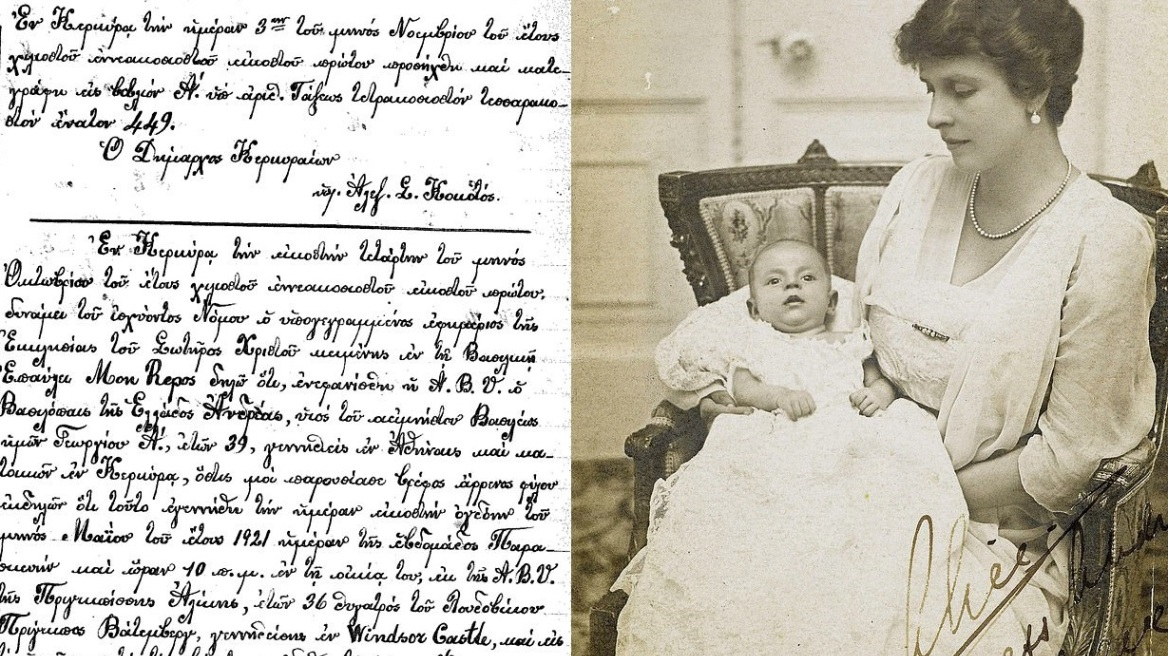 Ἐν Κερκύρᾳ τὴν ἡμέραν 3ην τοῦ μηνός Νοεμβρίου τοῦ ἔτους
χιλιοστοῦ ἐννεακοσιοστοῦ εἰκοστοῦ πρώτου προσήχθη καί κατε-
γράφη εἰς βιβλίον Α'. ὑπ' ἀριθ. Τάξεως τετρακοσιοστόν τεσσαρακο-
στόν ἔνατον 449.
Ὁ Δήμαρχος Κερκυραίων
ὑπ. Ἀλεξ. Σ.
Ἐν Κερκύρᾳ τὴν εἰκοστὴν τετάρτην τοῦ μηνός
Ὀκτωβρίου τοῦ ἔτους χιλιοστοῦ ἐννεακοσιοστοῦ εἰκοστοῦ πρώτου,
δυνάμει τοῦ ἰσχύοντος Νόμου ὁ ὑπογεγραμμένος ἐφημέριος τῆς
Ἐκκλησίας τοῦ Σωτῆρος Χριστοῦ κειμένης ἐν τῇ Βασιλικῇ
Ἐπαύλει Mon Repos δηλῶ ὅτι, ἐνεφανίσθη ἡ Α. Β. Υ. ὁ
Βασιλόπαις τῆς Ἑλλάδος Ἀνδρέας, υἱός τοῦ ἀειμνήστου Βασιλέως
ἡμῶν Γεωργίου Α', ἐτῶν 39, γεννηθείς ἐν Ἀθήναις καί κα-
τοικῶν ἐν Κερκύρᾳ, ὅστις μοί παρουσίασε βρέφος ἄρρενος φύλου
ἐκδηλῶν ὅτι τοῦτο ἐγεννήθη τὴν ἡμέραν εἰκοστὴν ὀγδόην τοῦ
μηνός Μαΐου τοῦ ἔτους 1921 ἡμέραν τῆς ἑβδομάδος Παρα-
σκευήν καί ὥραν 10 π.μ. ἐν τῇ οἰκίᾳ του, ἐκ τῆς Α. Β. Υ.
τῆς Πριγκιπίσσης Ἀλίκης, ἐτῶν 36 θυγατρός τοῦ Λουδοβίκου
Πρίγκιπος Βάτεμβεργ, γεννηθείσης ἐν Windsor Castle, καί εἰς
Alice